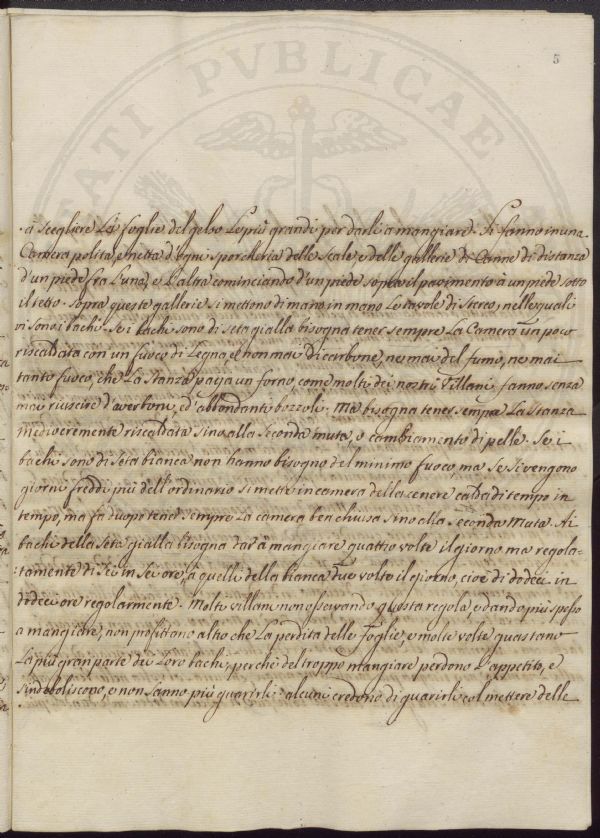 5
ATI PVBLICAE
a scegliere Le foglie del gelso Le più grandi per darli a mangiare. Si fanno in una
Camera polita, e netta d'ogni sporcheria delle Scale, e delle gallerie di Canne di distanza
d'un piede fra L'una, e L'altra cominciando d'un piede sopra il pavimento à un piede sotto
il tetto. Sopra queste gallerie si mettono di mano in mano Le tavole di Sterco, nelle quali
vi sono i bachi. Se i bachi sono di seta gialla bisogna tener sempre La Camera un poco
riscaldata con un fuoco di Legna, e non mai di carbone, ne mai del fumo, ne mai
tanto fuoco, che La Stanza paja un forno, come molti dei nostri Villani fanno senza
mai riuscire d'aver boni, ed abbondanti bozzoli. Ma bisogna tener sempre La Stanza
mediocremente riscaldata sino alla seconda muta, o cambiamento di pelle. Se i
bachi sono di seta bianca non hanno bisogno del minimo fuoco, ma se si vengono
giorni freddi più dell'ordinario si mette in camera della cenere calda di tempo in
tempo, ma fa duopo tener sempre La camera ben chiusa sino alla seconda Muta. Ai
bachi della seta gialla bisogna dar à mangiare quattro volte il giorno ma regola-
:tamente di sei in sei ore, à quelli della bianca due volte il giorno, cioè di dodeci in
dodeci ore regolarmente. Molti villani non osservando questa regola, e dando più spesso
a mangiare, non profittano altro che La perdita delle foglie, e molte volte guastano
La più gran parte dei Loro bachi, perchè del troppo mangiare perdono L'appetito, e
s'indeboliscono, e non sanno più guarirli: alcuni credono di guarirli col mettere delle